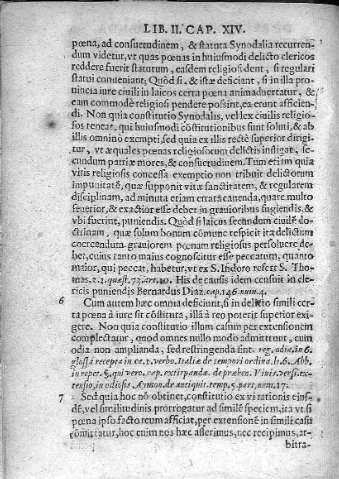 LIB. II. CAP. XIV.
pœna, ad consuetudinem, & statuta Synodalia recurren-
dum videtur, vt quas pœnas in huiusmodi delicto clericos
reddere fuerit statutum, easdem religiosi dent, si regulari
statui conueniant. Quòd si, & istæ deficiant, si in illa pro-
uincia iure ciuili in laicos certa pœna animaduertatur, &
eam commodè religiosi pendere possint, ea erunt afficien-
di. Non quia constitutio Synodalis, vel lex ciuilis religio-
sos teneat, qui huiusmodi cõstitutionibus sunt soluti, & ab
illis omninò exempti, sed quia ex illis rectè superior dirigi-
tur, vt æquales pœnas religiosorum delictis infligat, se-
cundum patriæ mores, & consuetudinem. Tum etiam quia
vitis religiosis concessa exemptio non tribuit delictorum
impunitatē, quæ supponit vitæ sanctitatem, & regularem
disciplinam, ad minuta etiam errata cauenda, quare multo
seuerior, & exactior esse debet in grauioribus fugiendis, &
vbi fuerint, puniendis. Quòd si laicus secundum ciuilē do-
ctrinam, quæ solum bonum cõmune respicit ita delictum
coercenda grauiorem pœnam religiosus persoluere de-
bet, cuius tanto maius cognoscitur esse peccatum, quanto
maior, qui peccat, habetur, vt ex S. Isidoro refert S. Tho-
mas. 2.2. quæst. 73. art. 10. His de causis idem censuit in cle-
ricis puniendis Bernardus Diaz. cap. 146. num. 4.
6 Cum autem hæc omnia deficiunt, si in delicto simili cer-
ta pœna à iure sit cõstituta, illâ à reo poterit superior exi-
gere. Non quia constitutio illum casum per extensionem
complectatur, quod omnes nullo modo admittunt, cum
odia non amplianda, sed restringenda sint.
7 Sed quia hoc nõ obtinet, constitutio ex vi rationis eius-
dē, vel similitudinis prorrogatur ad similē speciem, ita vt si
pœna ipso facto reum afficiat, per extensionē in simili casu
cõmittatur, hoc enim nos hæc asserimus, nec recipimus, ar-
bitra-